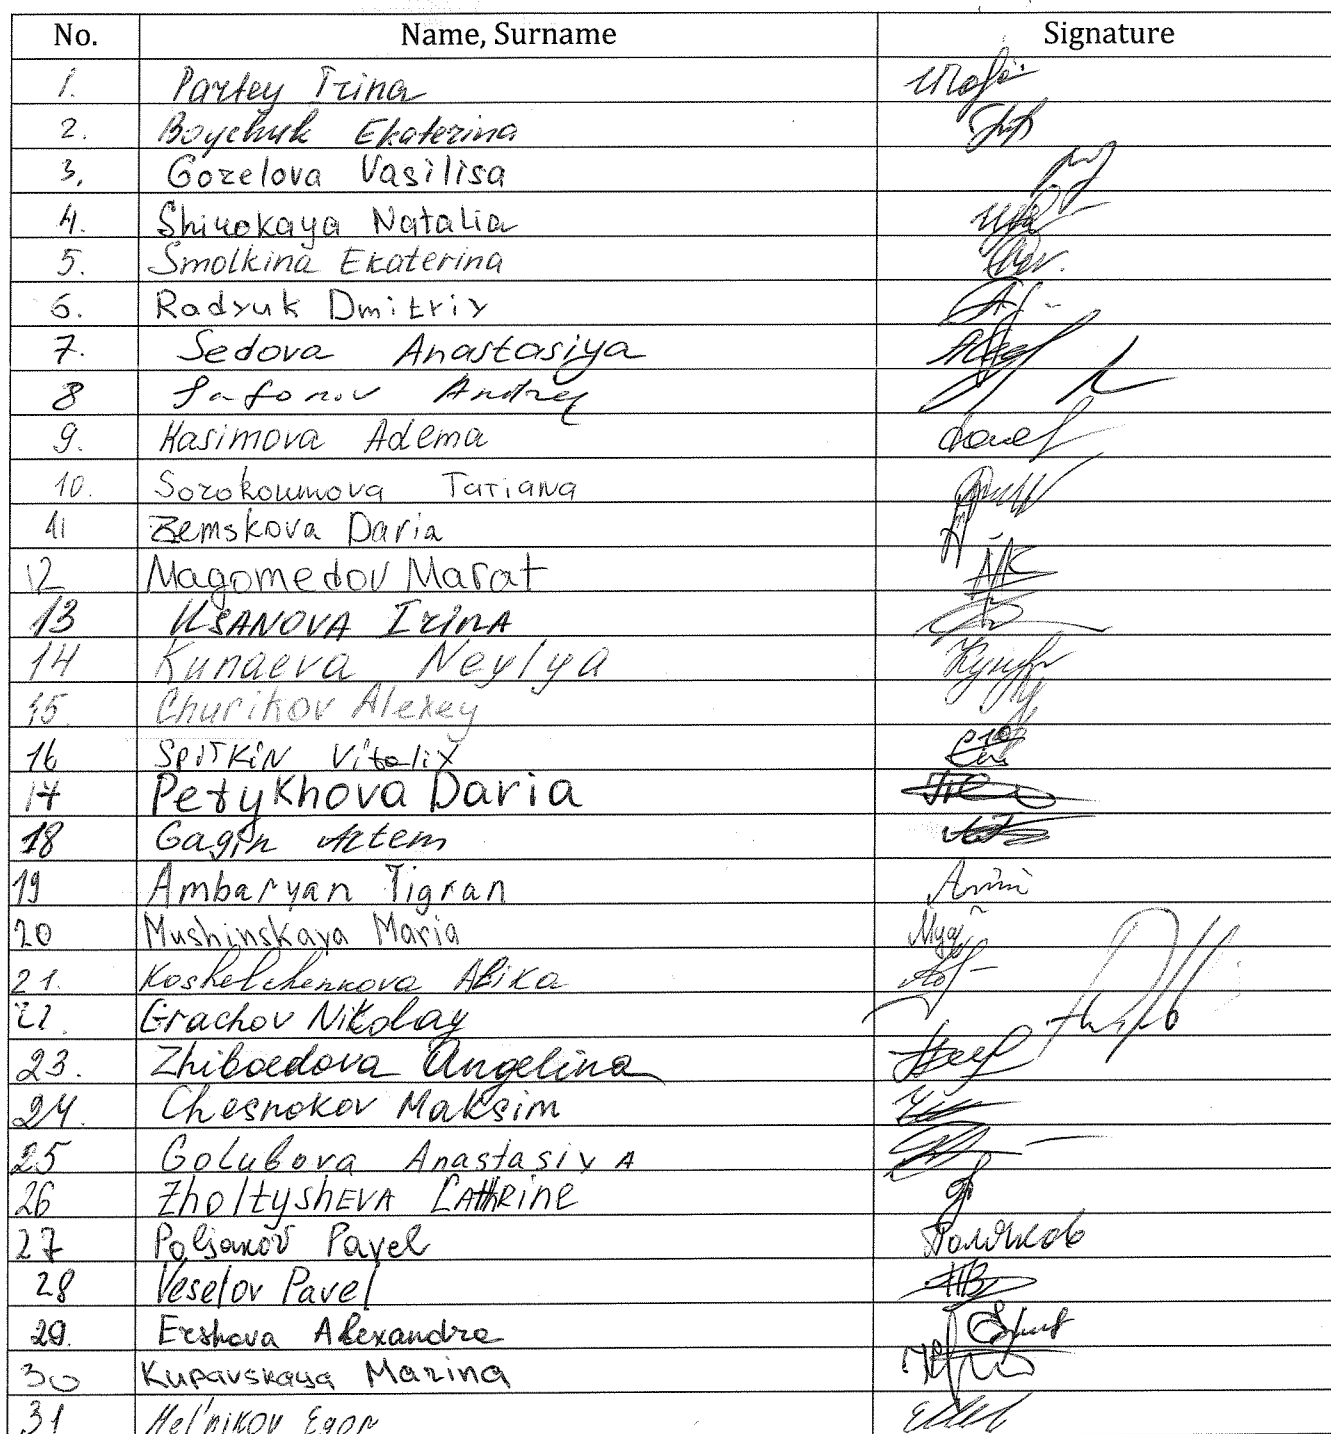 No. Name, Surname Signature
1. Partey Irina
2. Boychuk Ekaterina
3. Gorelova Vasilisa
4. Shirokaya Natalia
5. Smolkina Ekaterina
6. Radyuk Dmitriy
7. Sedova Anastasiya
8 Safonov Andrey
9. Kasimova Adema
10. Sorokoumova Tatiana
11 Zemskova Daria
12 Magomedov Marat
13 USANOVA IrinA
14 Kunaeva Neylya
15. Churikov Alexey
16 SPITKIN Vitaliy
17 Petykhova Daria
18 Gagin Artem
19 Ambaryan Tigran
20 Mushinskaya Maria
21. Koshelchenkova Alika
22. Grachov Nikolay
23. Zhiboedova Angelina
24. Chesnokov Maksim
25 Golubova Anastasiya
26 ZholtyshEVA CATHRINE
27 Poljakov Pavel Поляков
28 Veselov Pavel
29. Ershova Alexandra
30 Kupavskaya Marina
31 Mel'nikov Egor